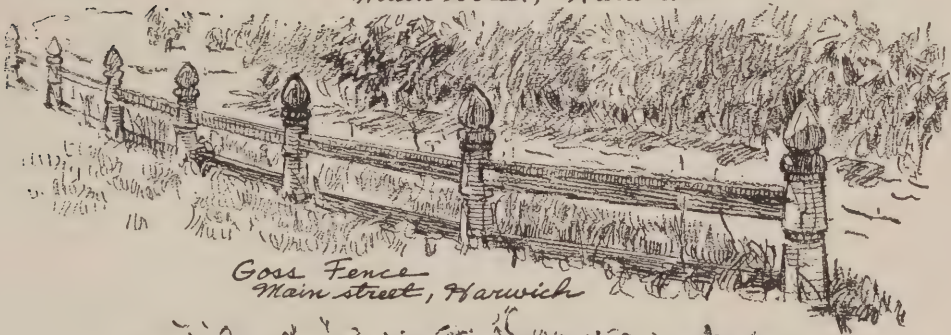 Goss Fence
Main street, Harwich